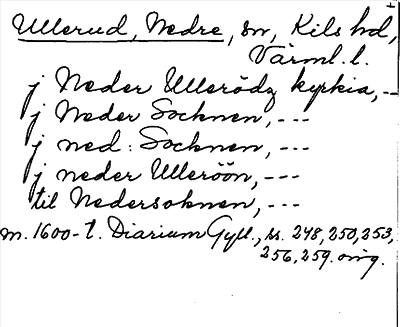 Ullerud, Nedre, sn, Kils hd,
Värml. l.
j Neder Ullerödz kyrkia, --
j Neder Socknen, ---
j ned: Socknen, ---
j neder Ulleröön, ---
til Nedersoknen, ---
m. 1600-t. Diarium Gyll., ss. 248, 250, 253,
256, 259. orig.